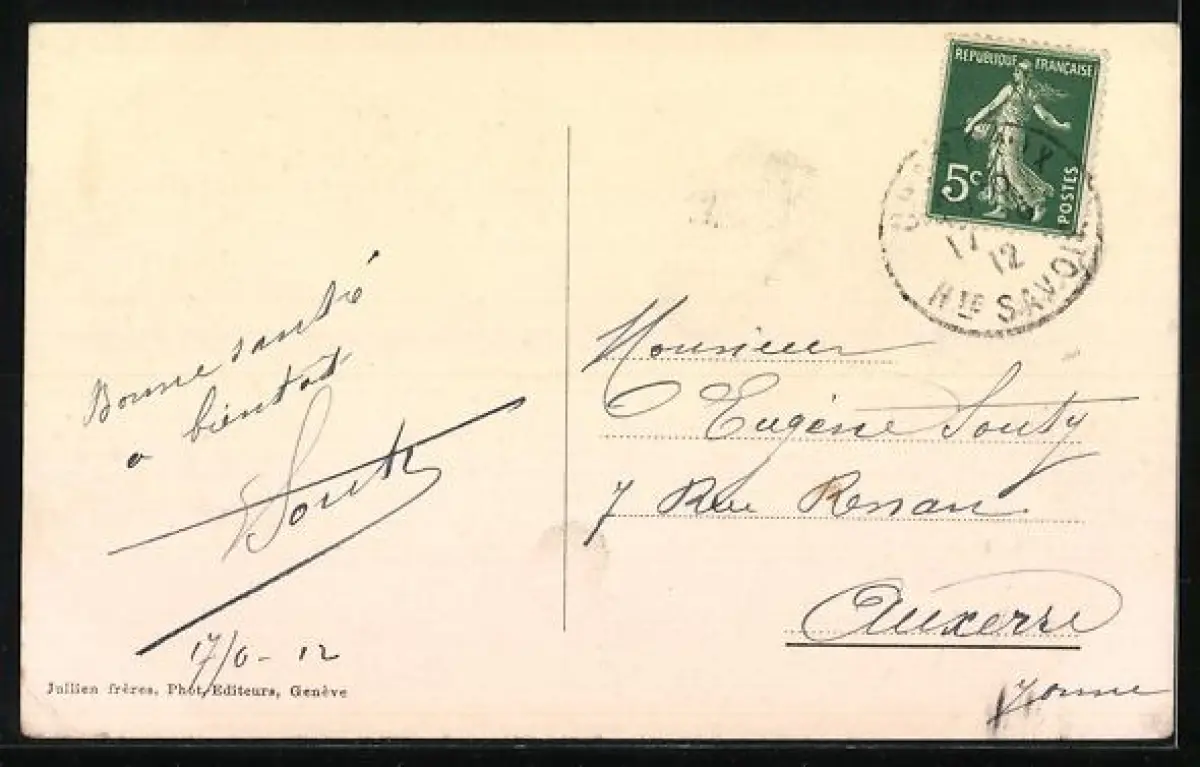 REPUBLIQUE FRANÇAISE
5c
POSTES
17
12
Hte SAVOIE
Bonne santé
a bientot
Souty
17/6-12
Jullien frères, Phot. Editeurs, Genève
Monsieur
Eugène Souty
7 Rue Renan
Auxerre
Yonne